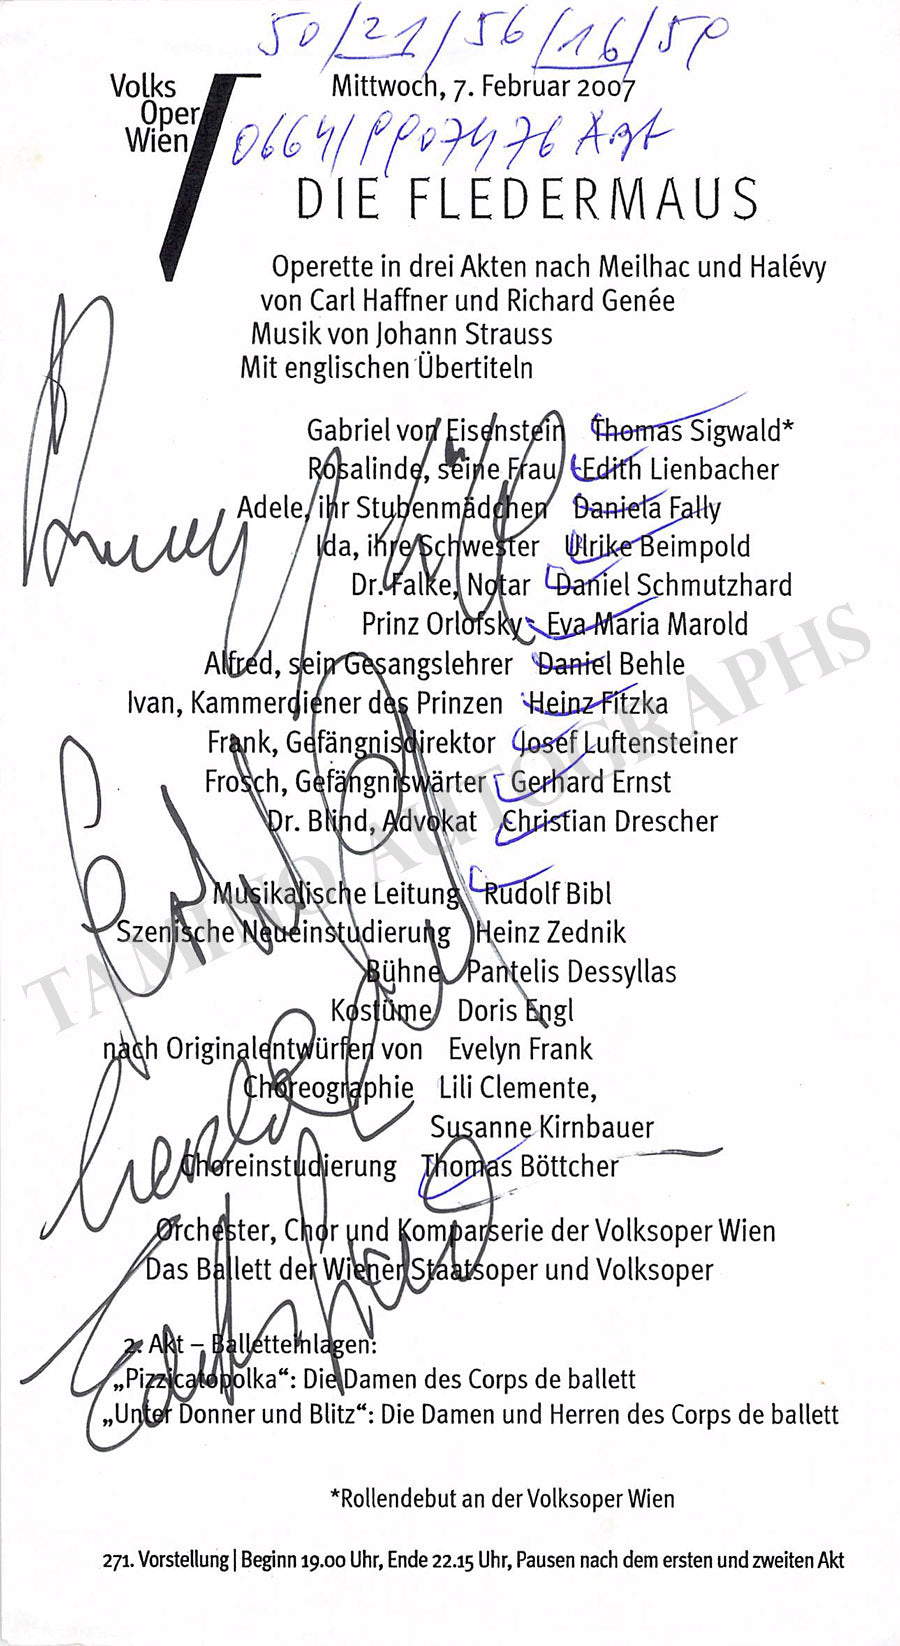 50/21/56/16/50
Volks
Oper
Wien
Mittwoch, 7. Februar 2007
DIE FLEDERMAUS
Operette in drei Akten nach Meilhac und Halévy
von Carl Haffner und Richard Genée
Musik von Johann Strauss
Mit englischen Übertiteln
Gabriel von Eisenstein Thomas Sigwald*
Rosalinde, seine Frau Edith Lienbacher
Adele, ihr Stubenmädchen Daniela Fally
Ida, ihre Schwester Ulrike Beimpold
Dr. Falke, Notar Daniel Schmutzhard
Prinz Orlofsky Eva Maria Marold
Alfred, sein Gesangslehrer Daniel Behle
Ivan, Kammerdiener des Prinzen Heinz Fitzka
Frank, Gefängnisdirektor Josef Luftensteiner
Frosch, Gefängniswärter Gerhard Ernst
Dr. Blind, Advokat Christian Drescher
TAMINO AUTOGRAPHS
Musikalische Leitung Rudolf Bibl
Szenische Neueinstudierung Heinz Zednik
Bühne Pantelis Dessyllas
Kostüme Doris Engl
nach Originalentwürfen von Evelyn Frank
Choreographie Lili Clemente,
Susanne Kirnbauer
Choreinstudierung Thomas Böttcher
Orchester, Chor und Komparserie der Volksoper Wien
Das Ballett der Wiener Staatsoper und Volksoper
2. Akt – Balletteinlagen:
„Pizzicatopolka“: Die Damen des Corps de ballett
„Unter Donner und Blitz“: Die Damen und Herren des Corps de ballett
*Rollendebut an der Volksoper Wien
271. Vorstellung | Beginn 19.00 Uhr, Ende 22.15 Uhr, Pausen nach dem ersten und zweiten Akt